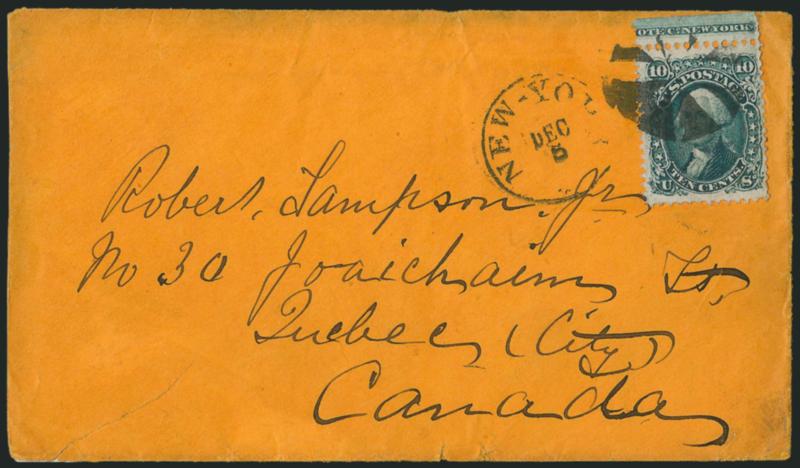 OTE CO. NEW YORK
10 U.S. POSTAGE 10
U TEN CENTS S.
NEW-YO
DEC
5
Robert. Sampson. Jr
No 30 Joaichaim St.
Quebec (City)
Canada